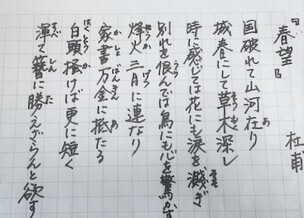 『春望』 杜甫
国破れて山河在り
城春にして草木深し
時に感じては花にも涙を濺ぎ
別れを恨んでは鳥にも心を驚かす
烽火三月に連なり
家書万金に抵たる
白頭掻けば更に短く
渾て簪に勝えざらんと欲す